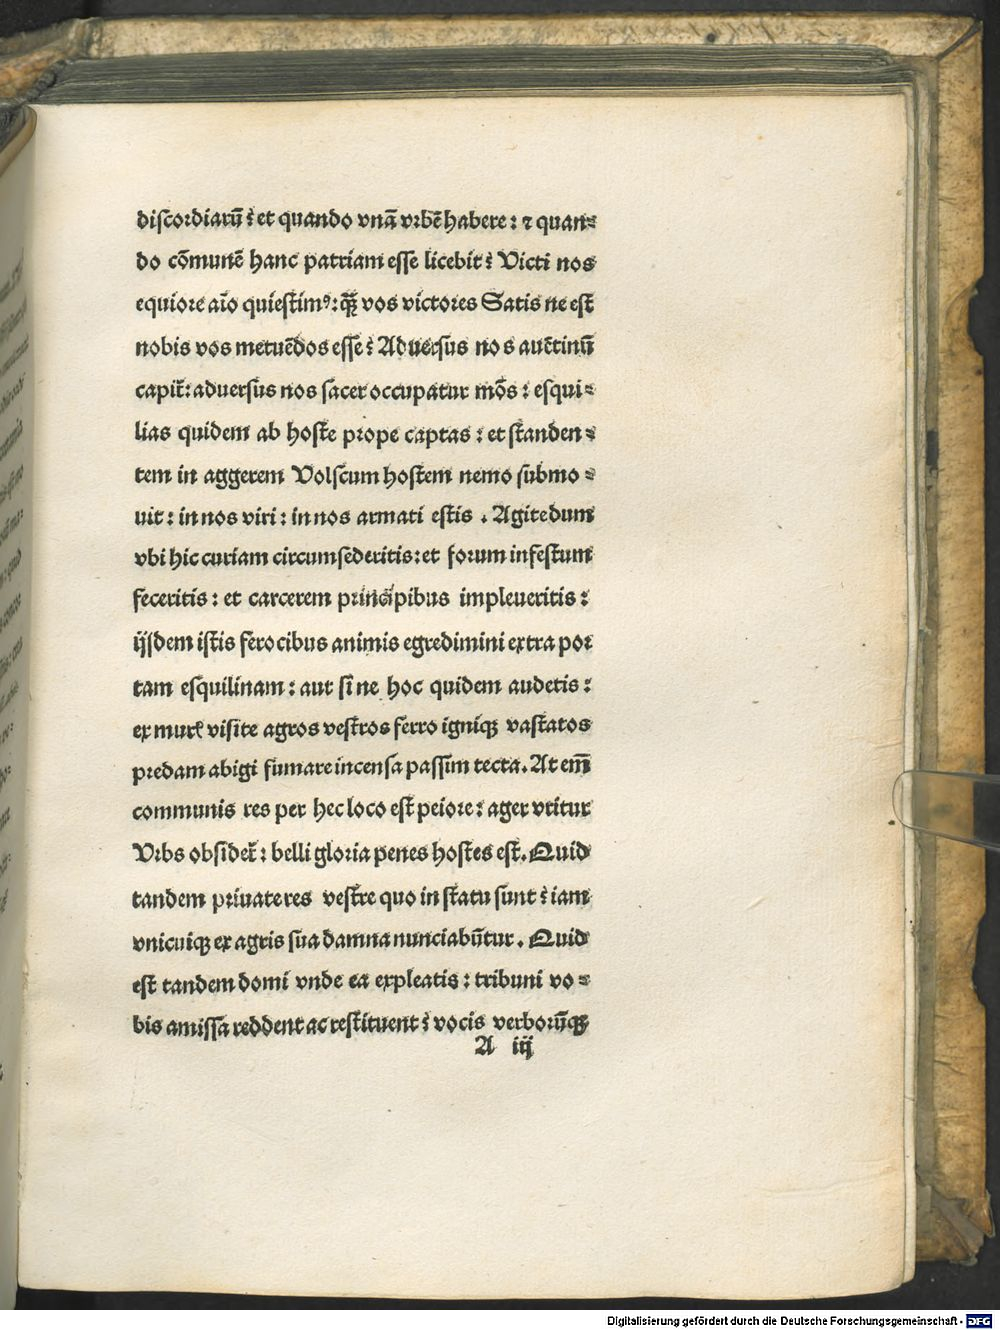 discordiarū? et quando vnā vrbē habere: ⁊ quan-
do cōmunē hanc patriam esse licebit? Victi nos
equiore aīo quiestimꝰ: qꝫ vos victores Satis ne est
nobis vos metuēdos esse? Aduersus nos auētinū
capit̄: aduersus nos sacer occupatur mōs: esqui-
lias quidem ab hoste prope captas: et standen-
tem in aggerem Volscum hostem nemo submo-
uit: in nos viri: in nos armati estis. Agitedum
vbi hic curiam circumsederitis: et forum infestum
feceritis: et carcerem principibus impleueritis:
ijsdem istis ferocibus animis egredimini extra por
tam esquilinam: aut si ne hoc quidem audetis:
ex murꝭ visite agros vestros ferro igniqꝫ vastatos
predam abigi fumare incensa passim tecta. At em̄
communis res per hec loco est peiore: ager vritur
Vrbs obsidet̄: belli gloria penes hostes est. Quid
tandem priuate res vestre quo in statu sunt? iam
vnicuiqꝫ ex agris sua damna nunciabūtur. Quid
est tandem domi vnde ea expleatis: tribuni vo-
bis amissa reddent ac restituent? vocis verborūqꝫ
A iij
Digitalisierung gefördert durch die Deutsche Forschungsgemeinschaft - DFG